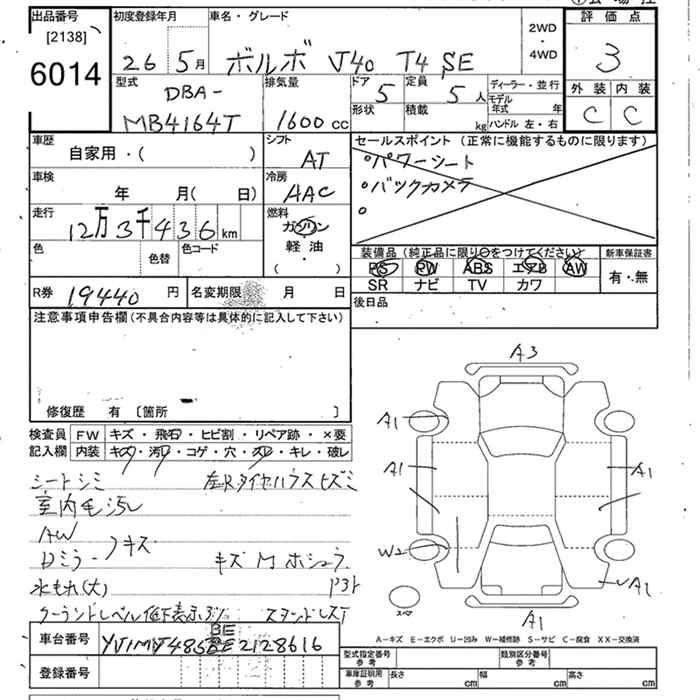 出品番号
[2138]
6014
初度登録年月
26 5月
車名・グレード
ボルボ V40 T4 SE
2WD
・
4WD
評価点
3
外装 内装
C C
型式
DBA-
MB4164T
排気量
1600 cc
ドア 5
定員 5人
形状
積載 kg
ディーラー・並行
モデル年式 年
ハンドル 左・右
車歴
自家用・( )
シフト
AT
セールスポイント (正常に機能するものに限ります)
○パワーシート
○バックカメラ
○
車検
年 月( 日)
冷房
AAC
走行
12万3千436km
燃料
ガソリン
軽油
( )
色
色替
色コード
装備品 (純正品に限り○をつけてください)
PS PW ABS エアB AW
SR ナビ TV カワ
新車保証書
有・無
R券 19440 円
名変期限 月 日
後日品
注意事項申告欄(不具合内容等は具体的に記入して下さい)
修復歴 有 〔箇所 〕
検査員記入欄
FW キズ・飛石・ヒビ割・リペア跡・×要
内装 キズ・汚れ・コゲ・穴・スレ・キレ・破レ
シートシミ
室内毛汚レ
AW
Dミラー
キズ
水もれ(大)
キズ M ホシュウ
車台番号
BE
登録番号
A3
A1
A1
A1
W2
A1
スペア
A―キズ E―エクボ U―凹み W―補修跡 S―サビ C―腐食 XX―交換済
型式指定番号
参考
類別区分番号
参考
車庫証明用
参考
長さ cm
幅 cm
高さ cm